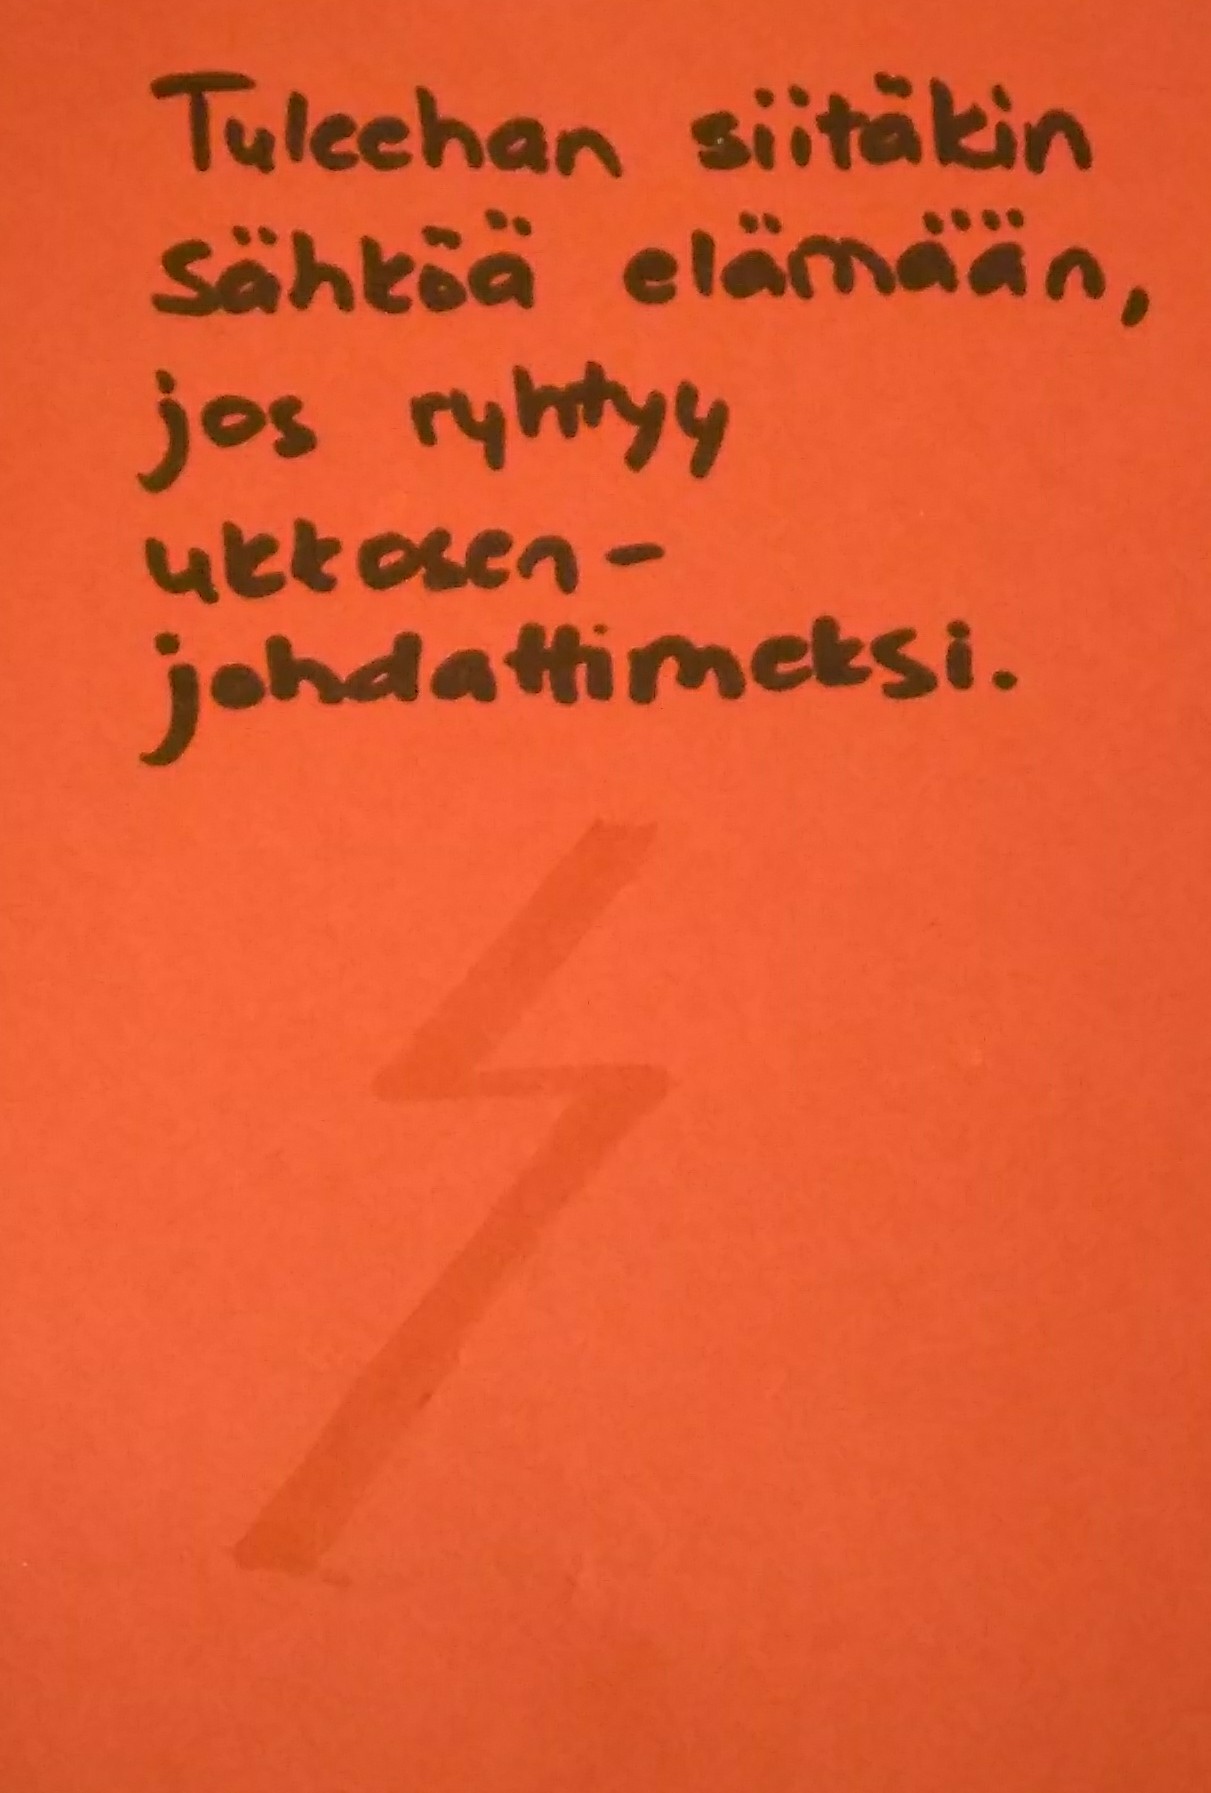 Tuleehan siitäkin
sähköä elämään,
jos ryhtyy
ukkosen-
johdattimeksi.